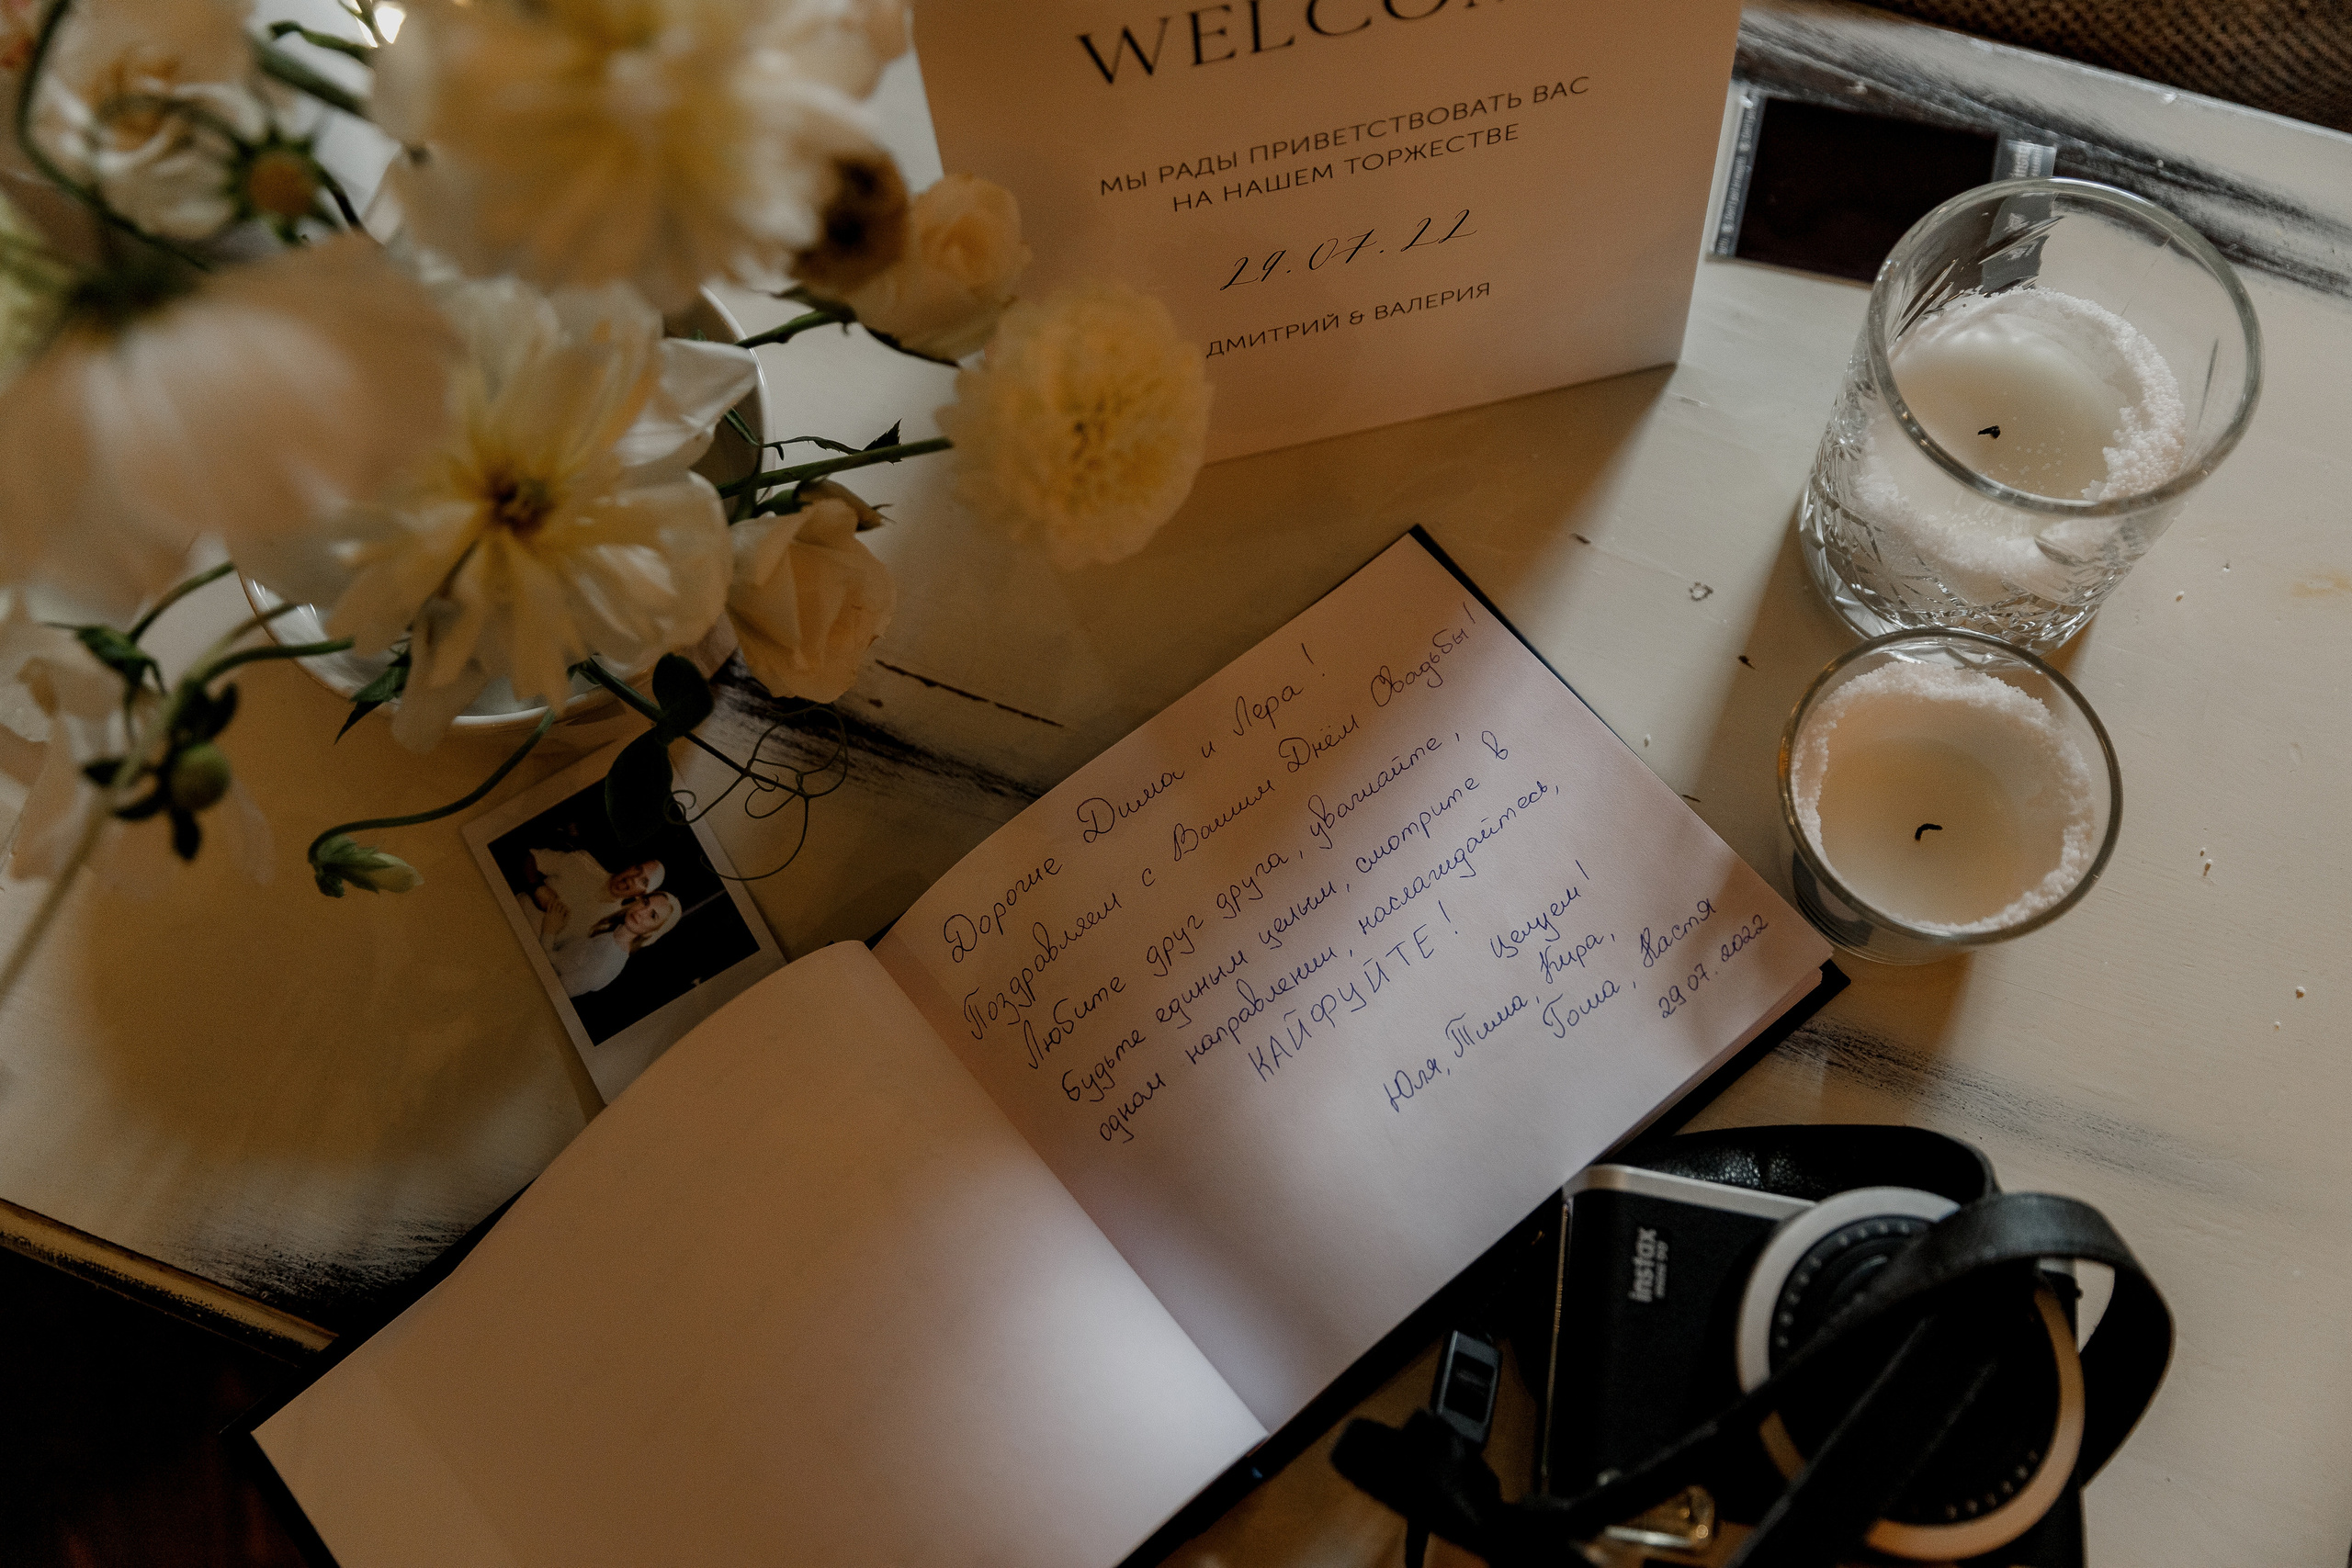 WELCOM
МЫ РАДЫ ПРИВЕТСТВОВАТЬ ВАС
НА НАШЕМ ТОРЖЕСТВЕ
29.07.22
ДМИТРИЙ & ВАЛЕРИЯ
Дорогие Дима и Лера!
Поздравляем с Вашим Днём Свадьбы!
Любите друг друга, уважайте,
будьте единым целым, смотрите в
одном направлении, наслаждайтесь,
КАЙФУЙТЕ!
Целуем!
Юля, Тима, Кира,
Гоша, Настя
29.07.2022
instax
mini 90